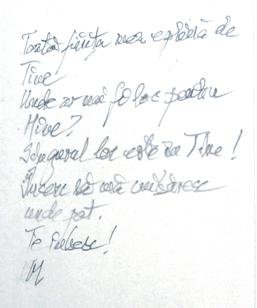 Toată ființa mea explodă de
Tine!
Unde ar mai fi loc pentru
Mine?
Singurul loc este în Tine!
Încerc să mă cuibăresc
unde pot.
Te iubesc!
M